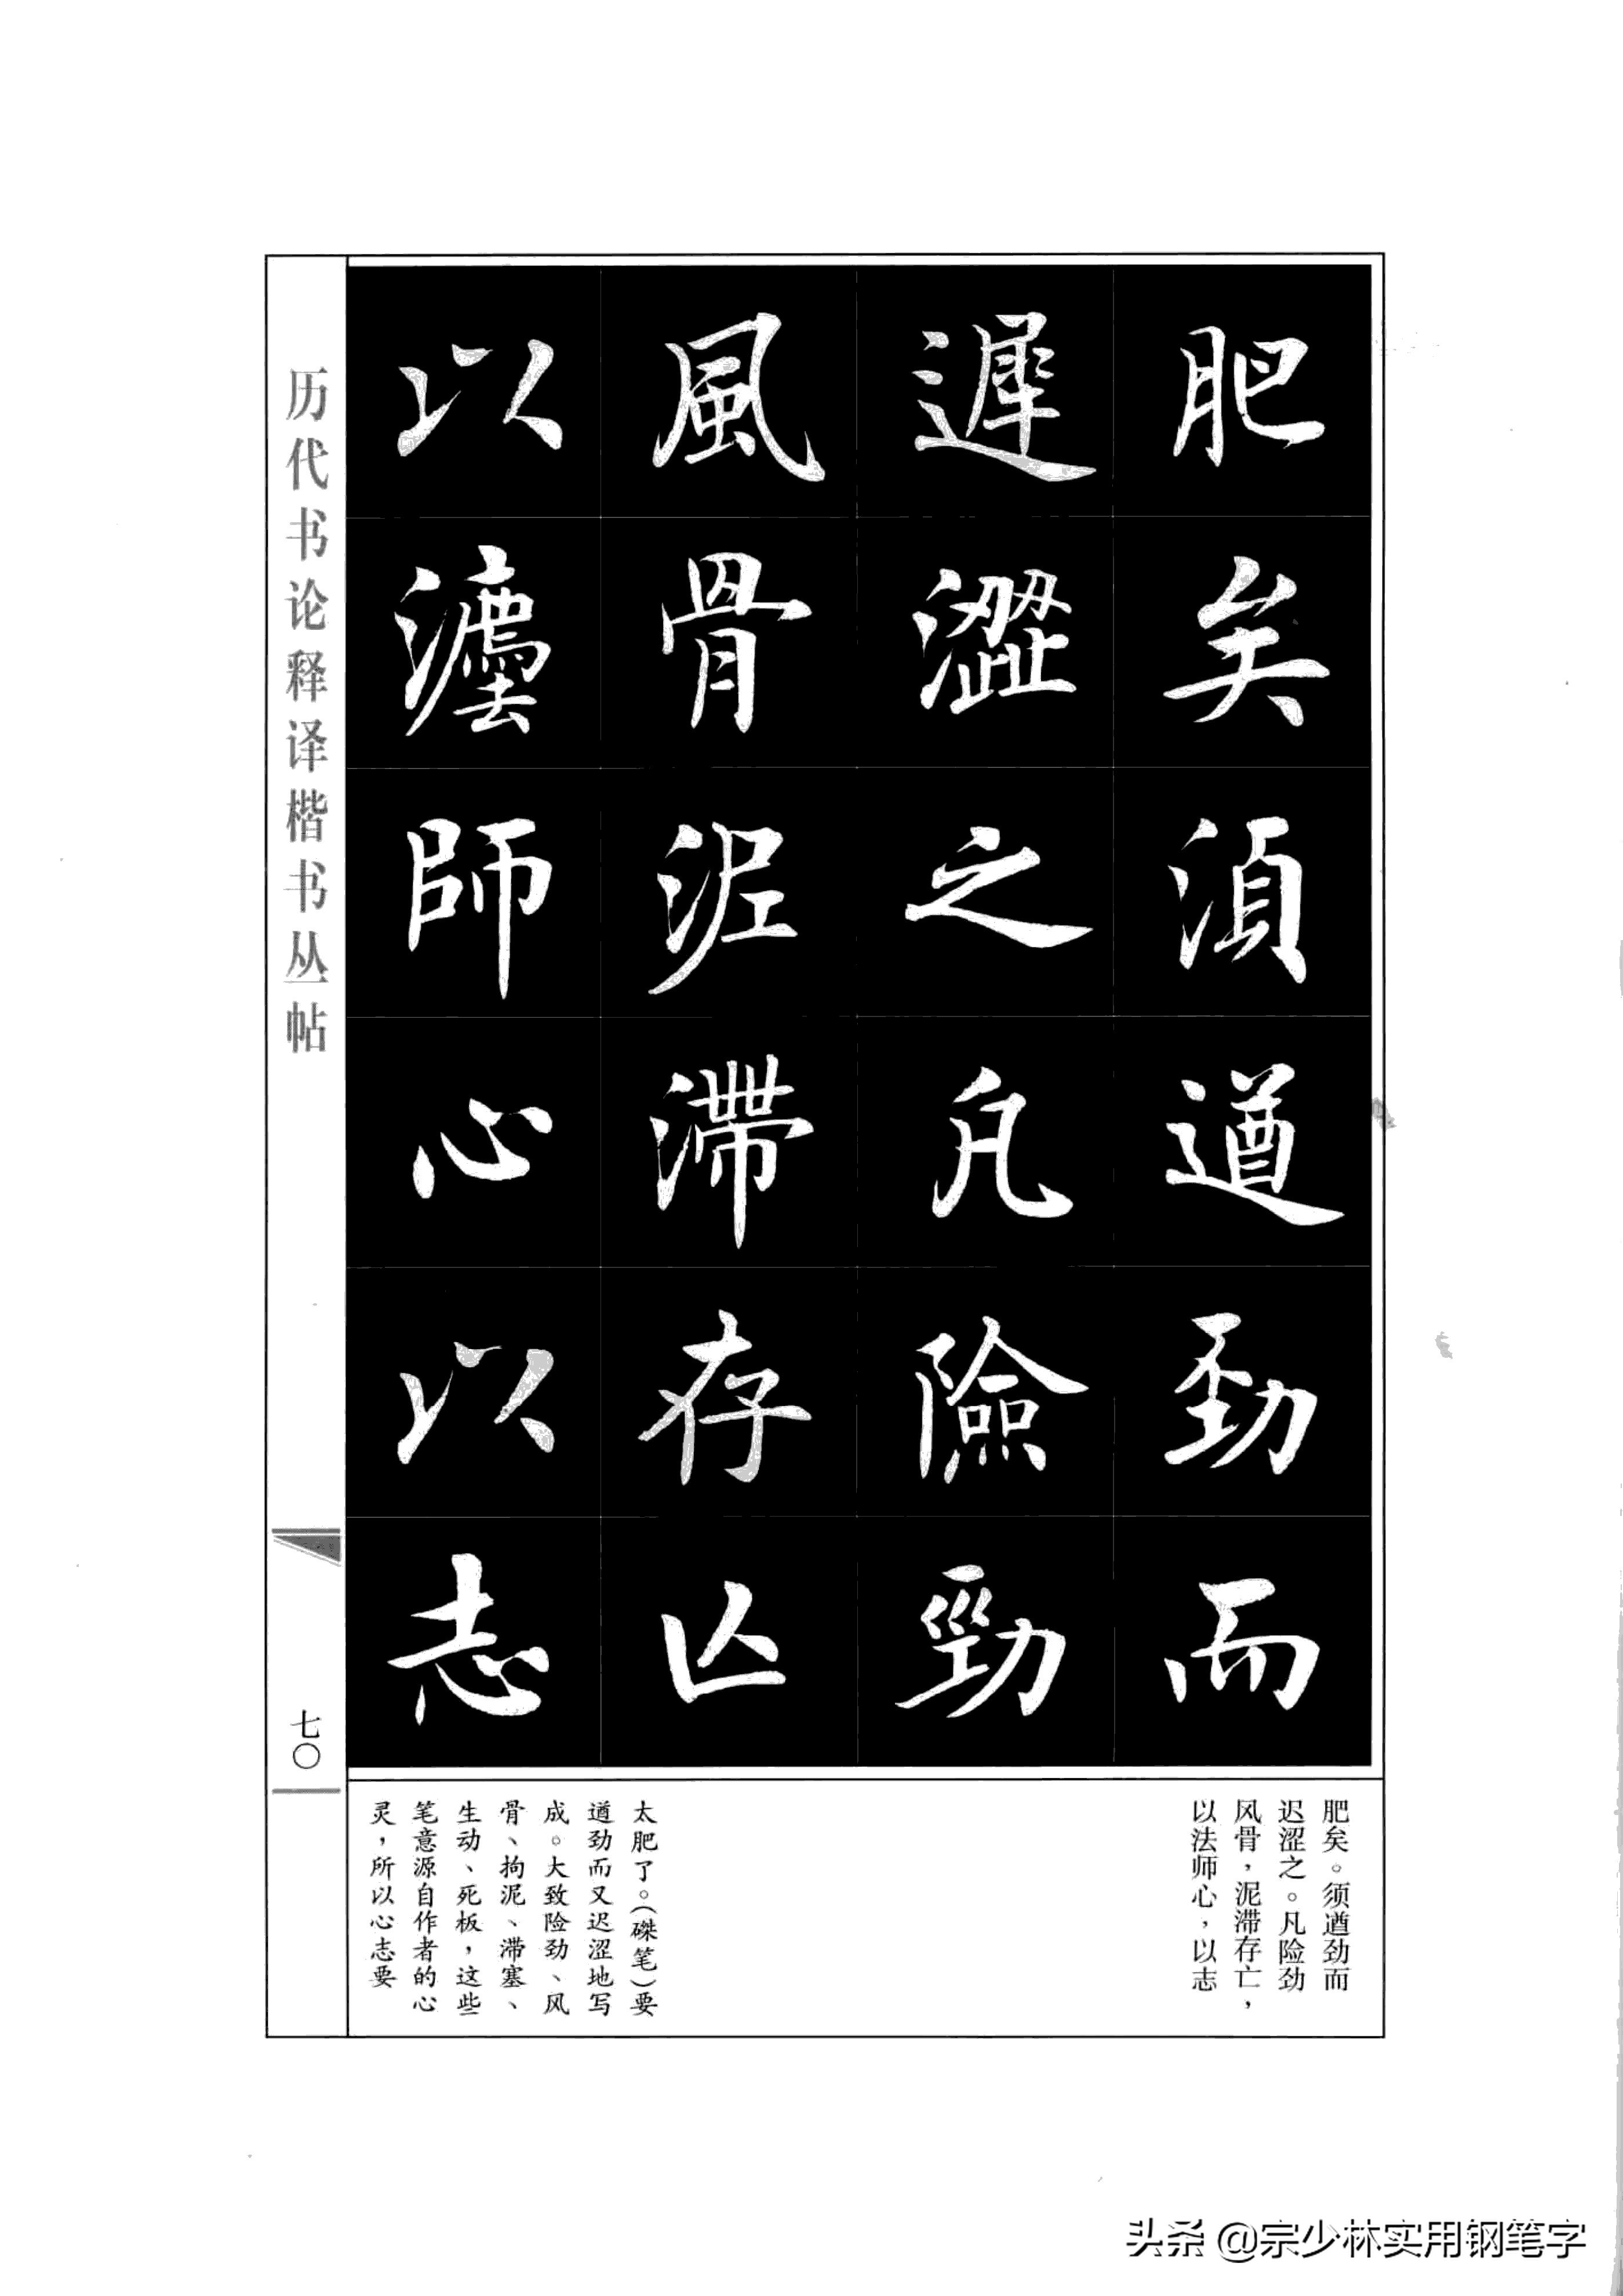 肥矣須遒劲而
遲澀之凡險勁
風骨泥滯存亾
以灋師心以志
肥矣。须遒劲而
迟涩之。凡险劲
风骨，泥滞存亡，
以法师心，以志
太肥了。（磔笔）要
遒劲而又迟涩地写
成。大致险劲、风
骨、拘泥、滞塞、
生动、死板，这些
笔意源自作者的心
灵，所以心志要
历代书论释译楷书丛帖
七〇
头条 @宗少林实用钢笔字